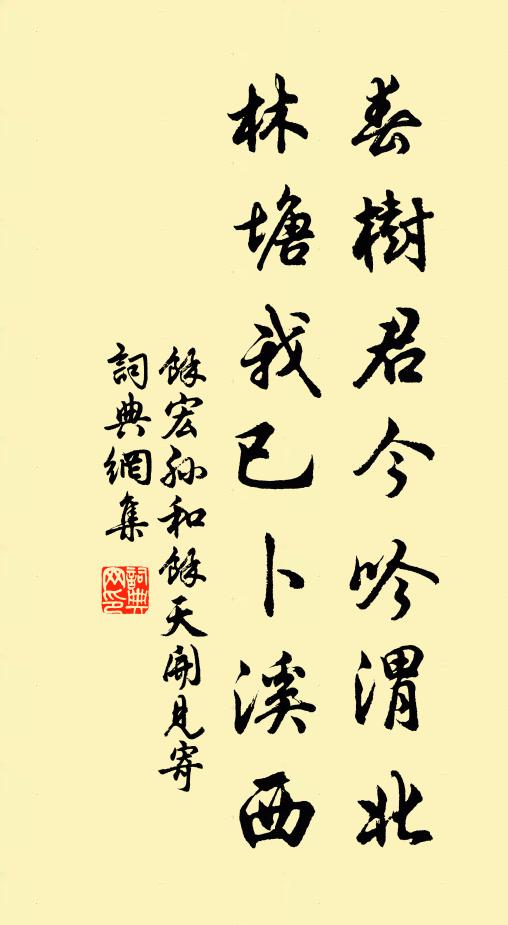 春樹君今吟渭北
林塘我已卜溪西
餘宏孫和餘天開見寄
詞典網集
詞典
网印